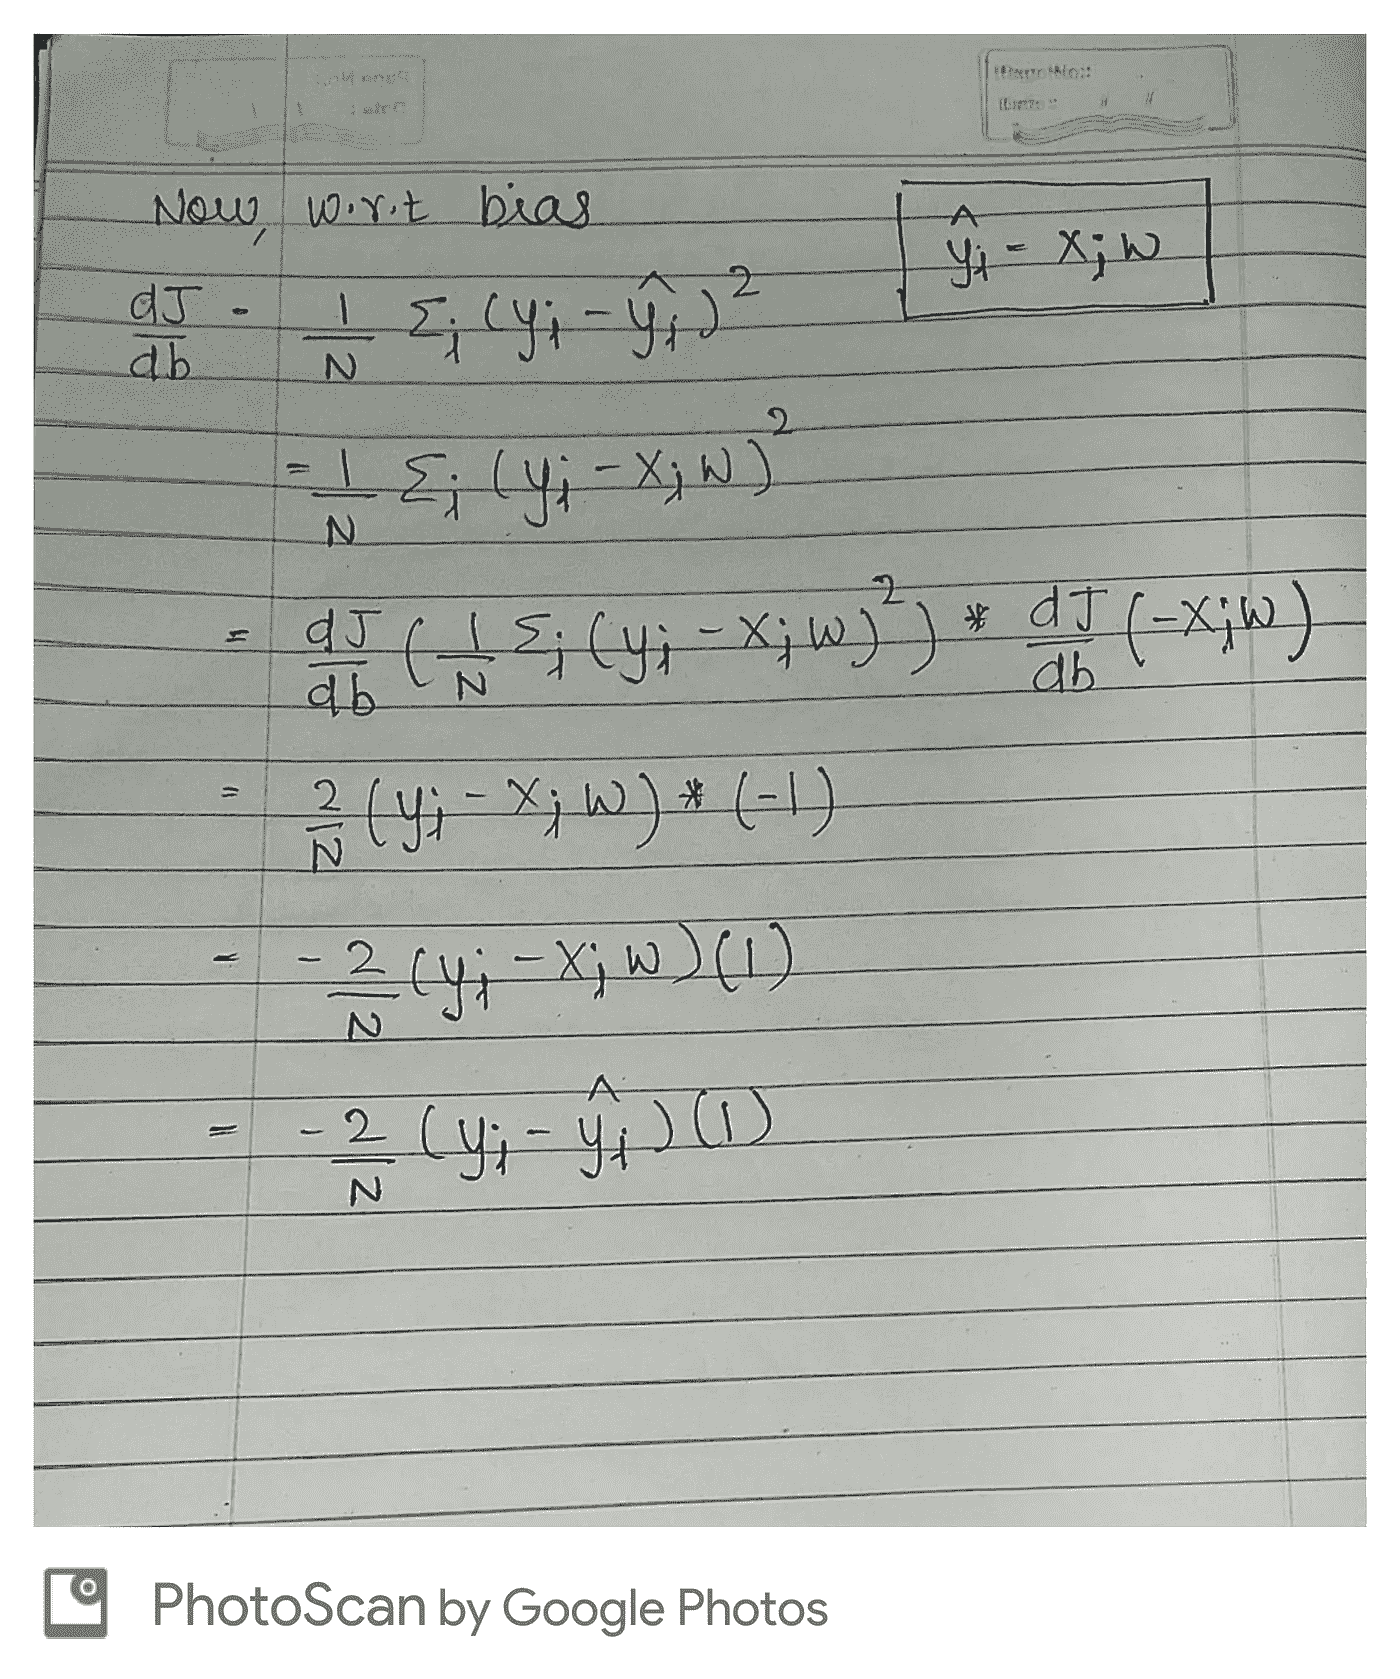 Page No.:
Date: / /
Now, w.r.t bias
ŷᵢ = Xᵢ W
dJ/db = 1/N Σᵢ (yᵢ - ŷᵢ)²
= 1/N Σᵢ (yᵢ - Xᵢ W)²
= dJ/db (1/N Σᵢ (yᵢ - Xᵢ W)²) * dJ/db (-Xᵢ W)
= 2/N (yᵢ - Xᵢ W) * (-1)
= -2/N (yᵢ - Xᵢ W)(1)
= -2/N (yᵢ - ŷᵢ)(1)
PhotoScan by Google Photos